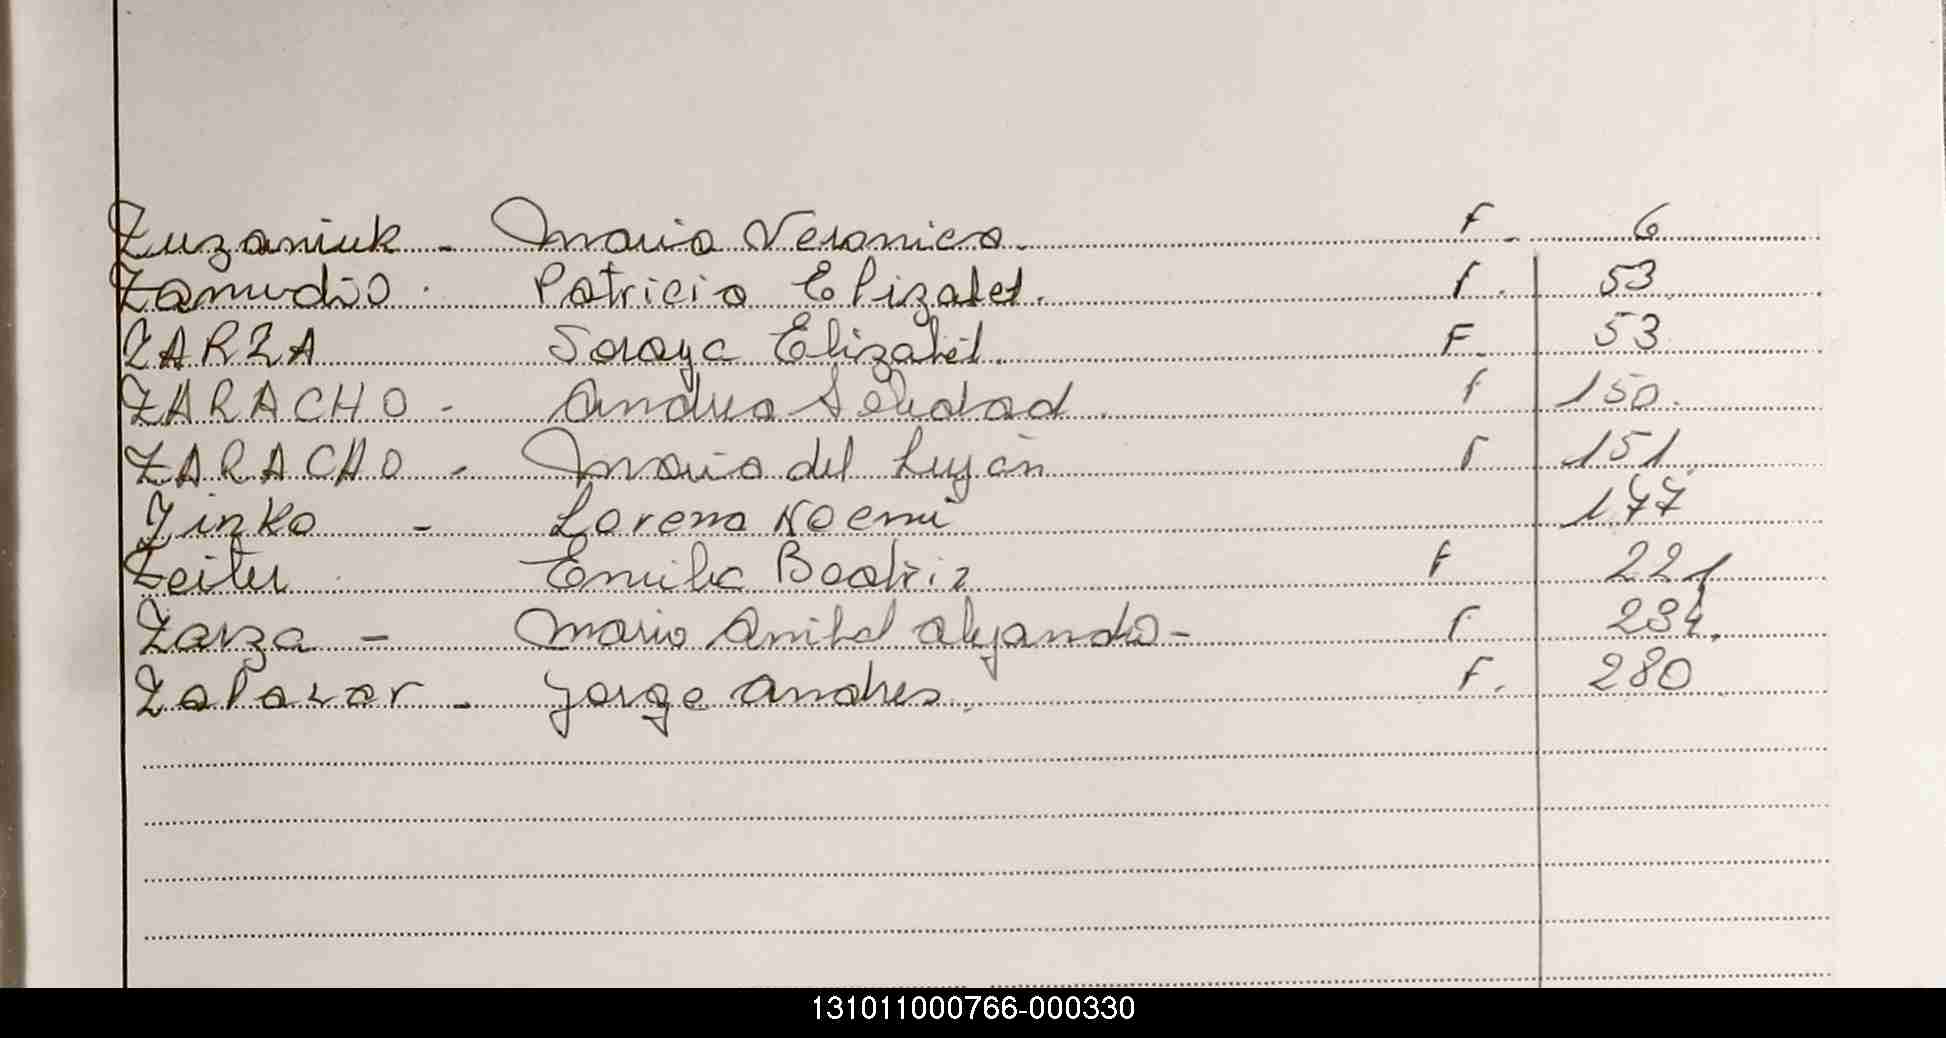 Zuzaniuk - Maria Veronica. F. 6
Zamudio. Patricia Elizabet. F. 53
ZARZA Soraya Elizabét. F. 53
ZARACHO - Andrea Soledad. F 150.
ZARACHO - Maria del Luján F 151.
Zinko - Lorena Noemi 177
Zeiter Emilia Beatriz F 221
Zarza - Mario Anibal Alejandro - F 234.
Zalazar - Jorge Andres. F. 280
131011000766-000330